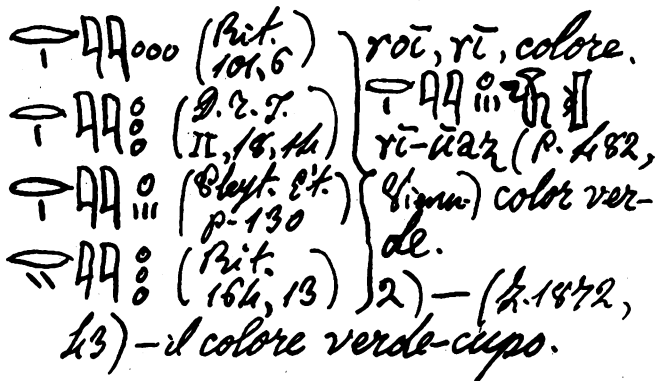 (Rit.
101,6)
(D. r. T.
II, 18, 14)
(Pleyt. Ét.
p-130)
(Rit.
164, 13)
roī, rī, colore.
rī-ūaz (P. 482,
Vienn.) color ver-
de.
2) — (Z. 1872,
43) — il colore verde-cupo.